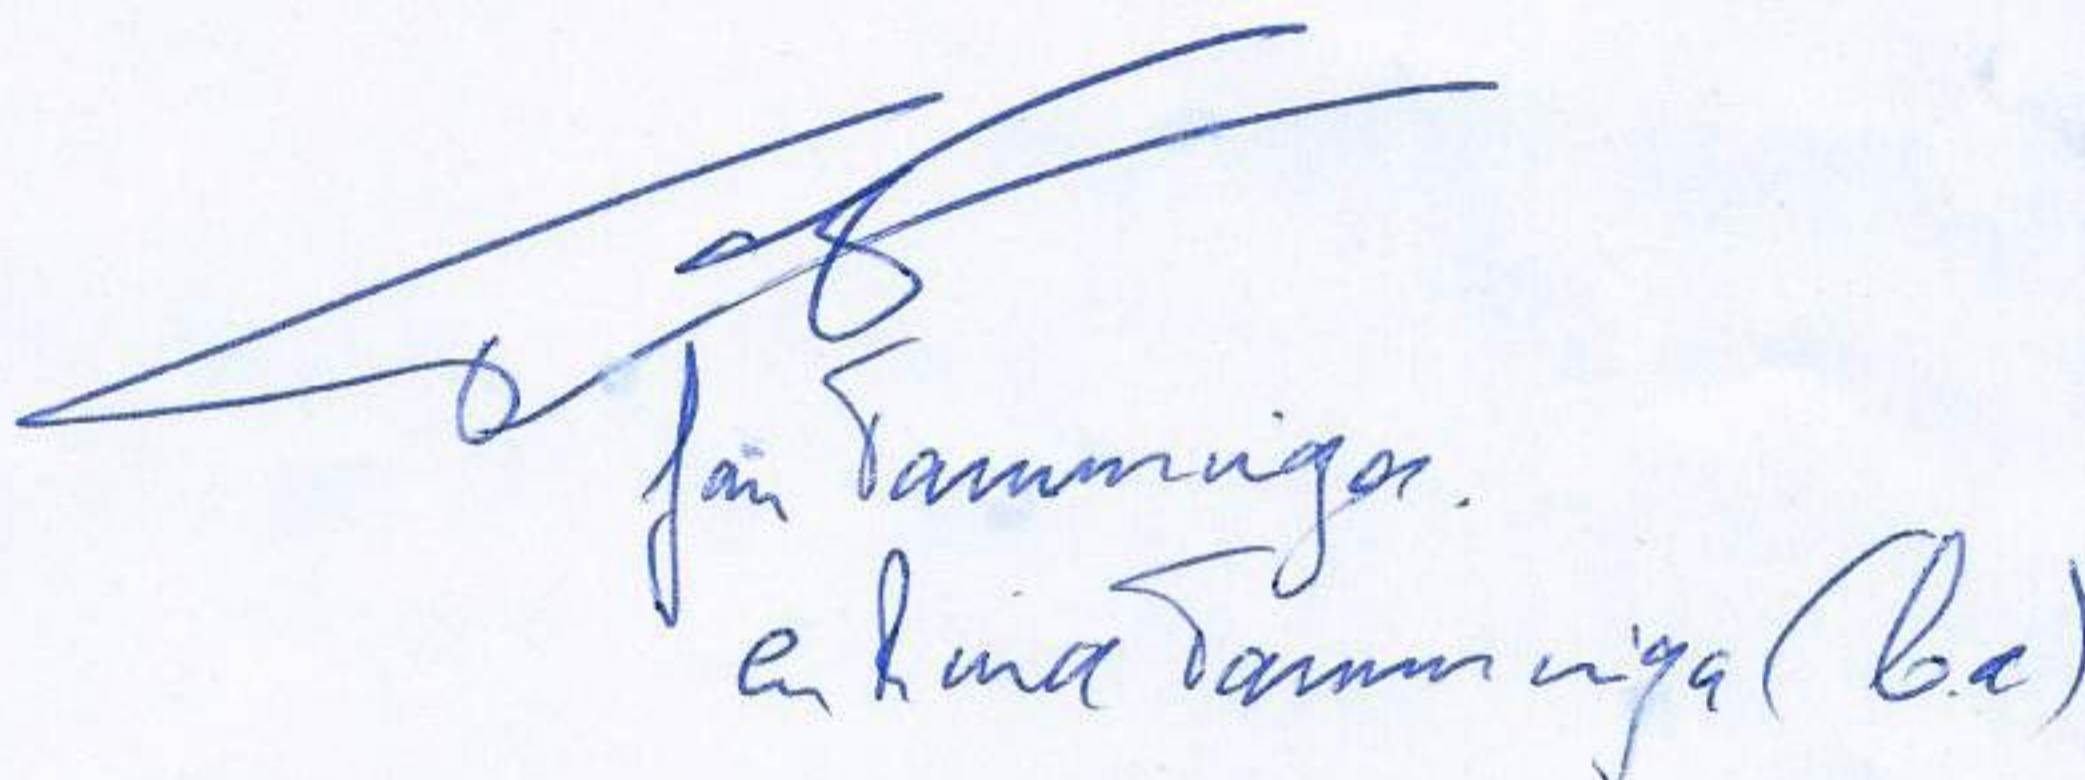 Jan Tamminga.
en Rina Tamminga (b.a)